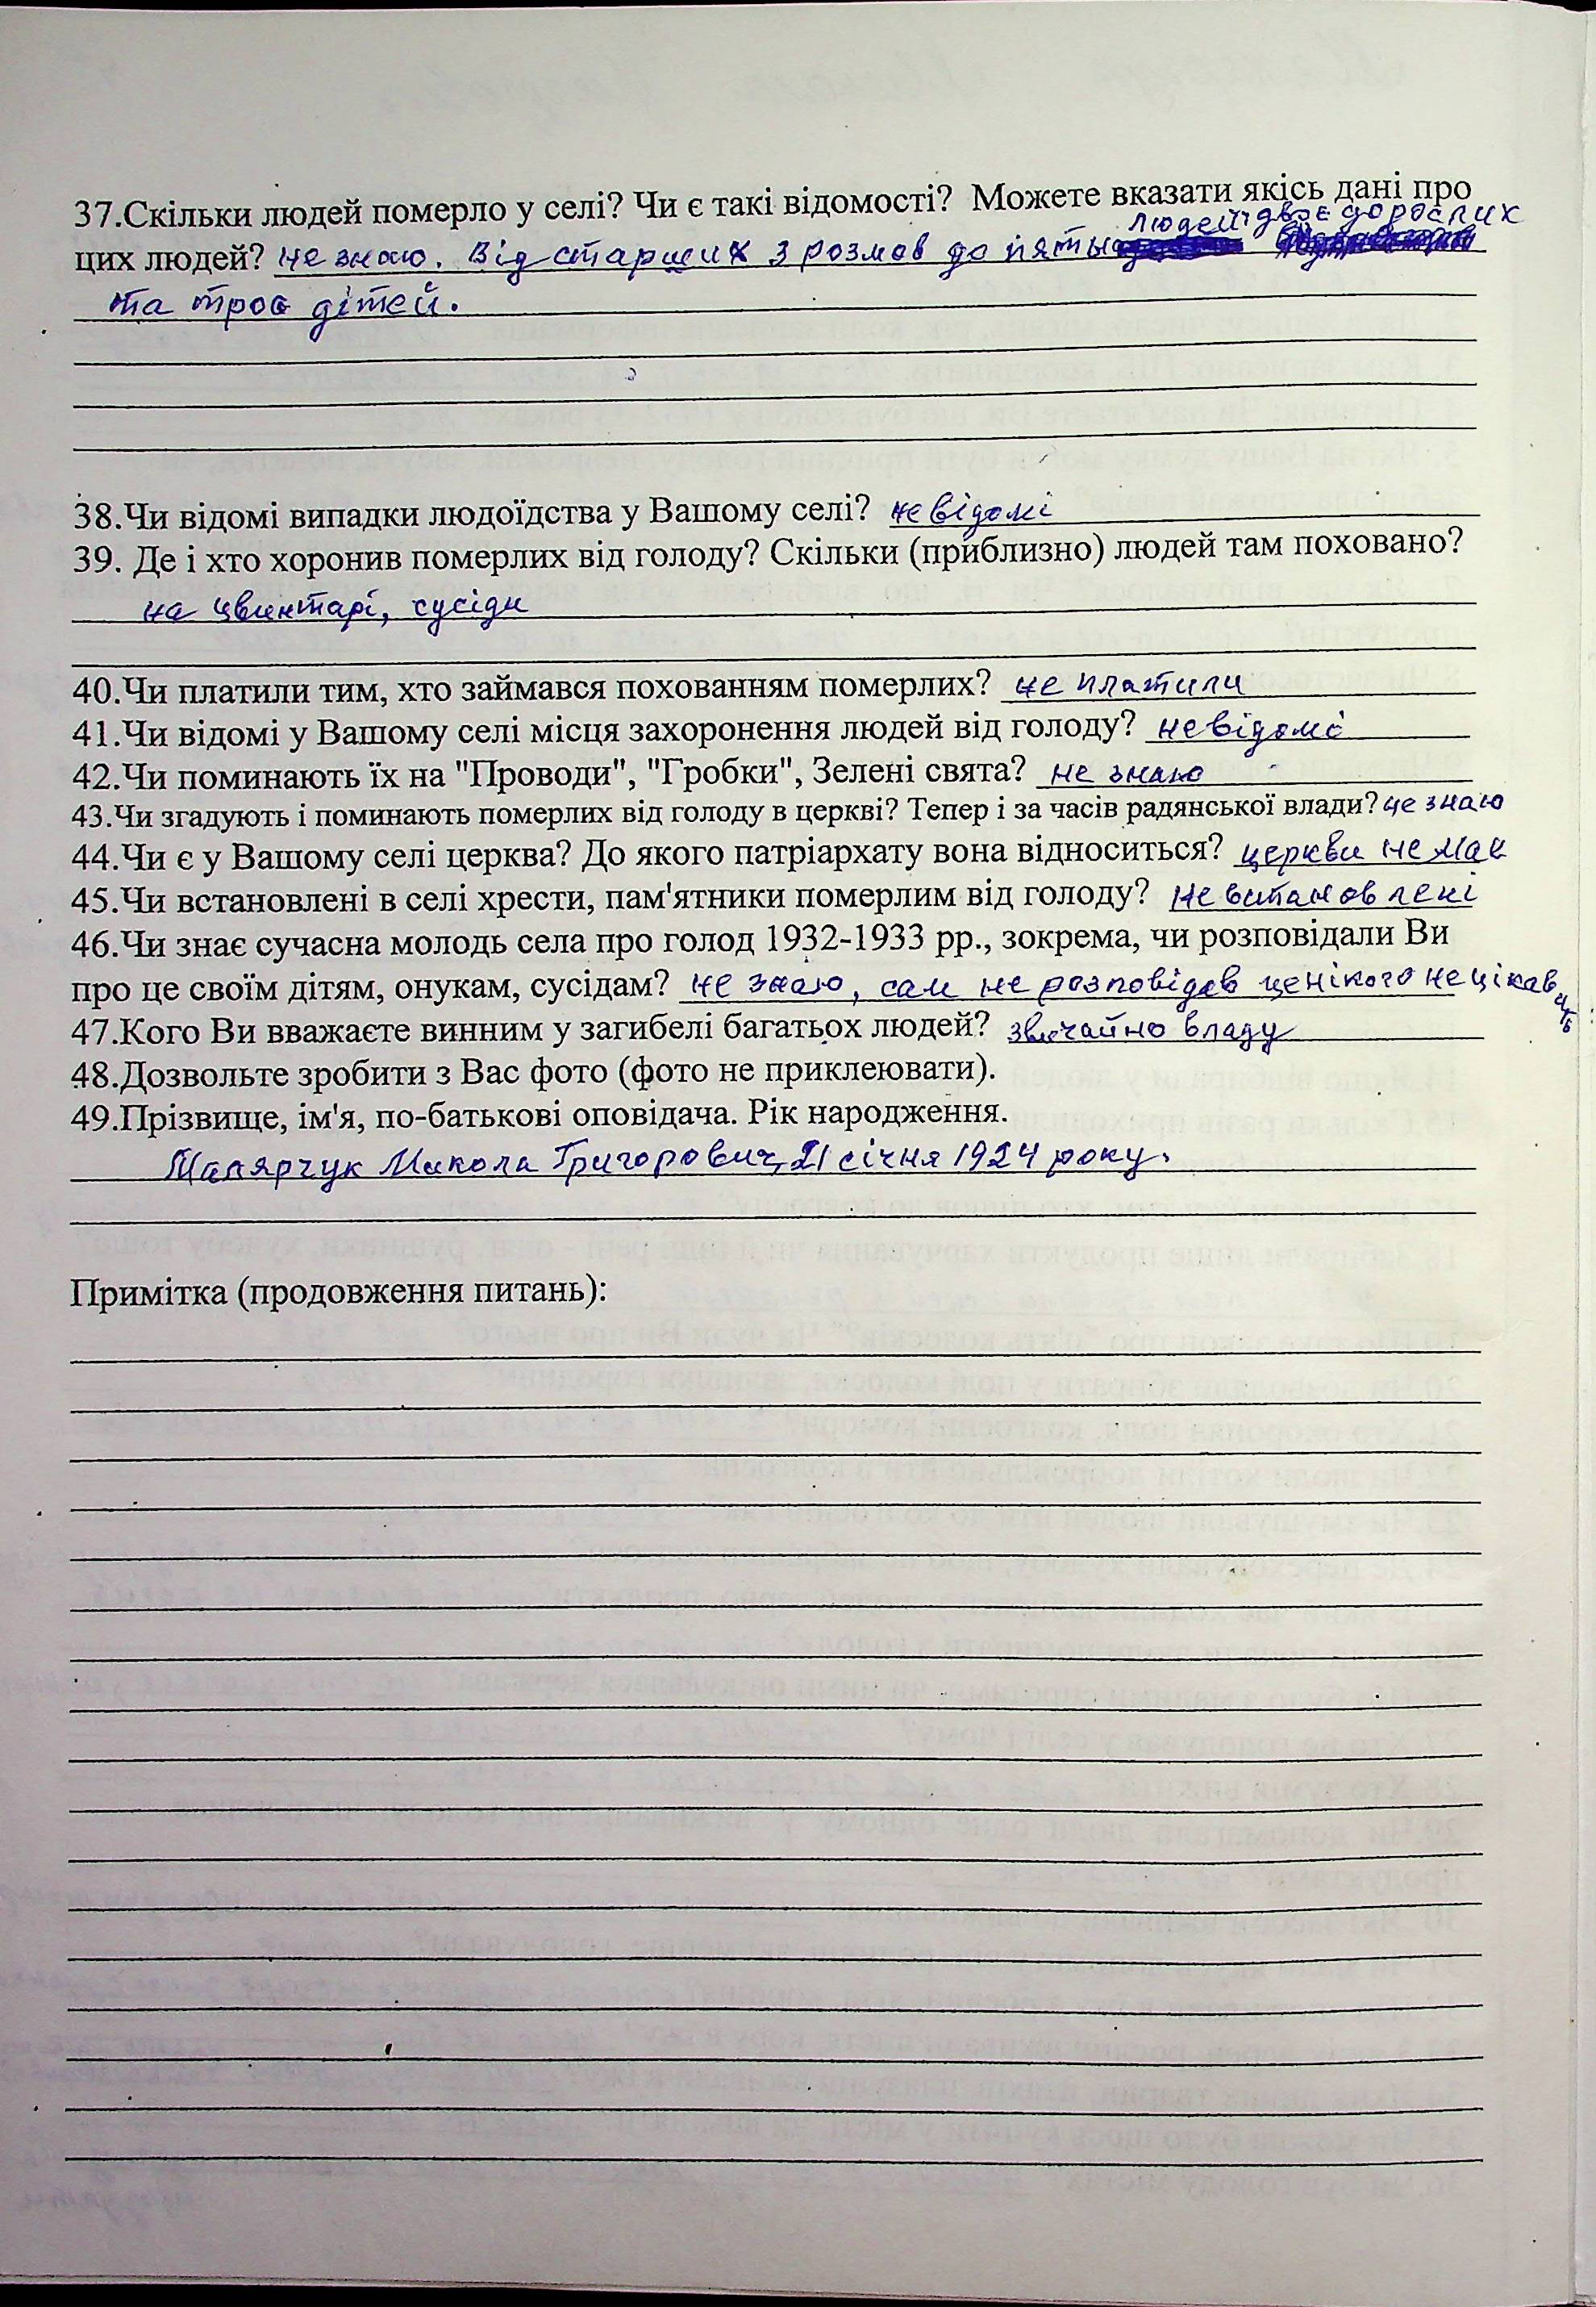 37.Скільки людей померло у селі? Чи є такі відомості? Можете вказати якісь дані про
людей: двоє дорослих
цих людей? не знаю. Від старших з розмов до пяты
та троє дітей.
38.Чи відомі випадки людоїдства у Вашому селі? не відомі
39. Де і хто хоронив померлих від голоду? Скільки (приблизно) людей там поховано?
на цвинтарі, сусіди
40.Чи платили тим, хто займався похованням померлих? не платили
41.Чи відомі у Вашому селі місця захоронення людей від голоду? невідомо
42.Чи поминають їх на "Проводи", "Гробки", Зелені свята? не знаю
43.Чи згадують і поминають померлих від голоду в церкві? Тепер і за часів радянської влади? не знаю
44.Чи є у Вашому селі церква? До якого патріархату вона відноситься? церкви немає
45.Чи встановлені в селі хрести, пам'ятники померлим від голоду? Не встановлені
46.Чи знає сучасна молодь села про голод 1932-1933 рр., зокрема, чи розповідали Ви
про це своїм дітям, онукам, сусідам? не знаю, сам не розповідав це нікого не цікавить
47.Кого Ви вважаєте винним у загибелі багатьох людей? звичайно владу
48.Дозвольте зробити з Вас фото (фото не приклеювати).
49.Прізвище, ім'я, по-батькові оповідача. Рік народження.
Малярчук Микола Григорович, 21 січня 1924 року.
Примітка (продовження питань):